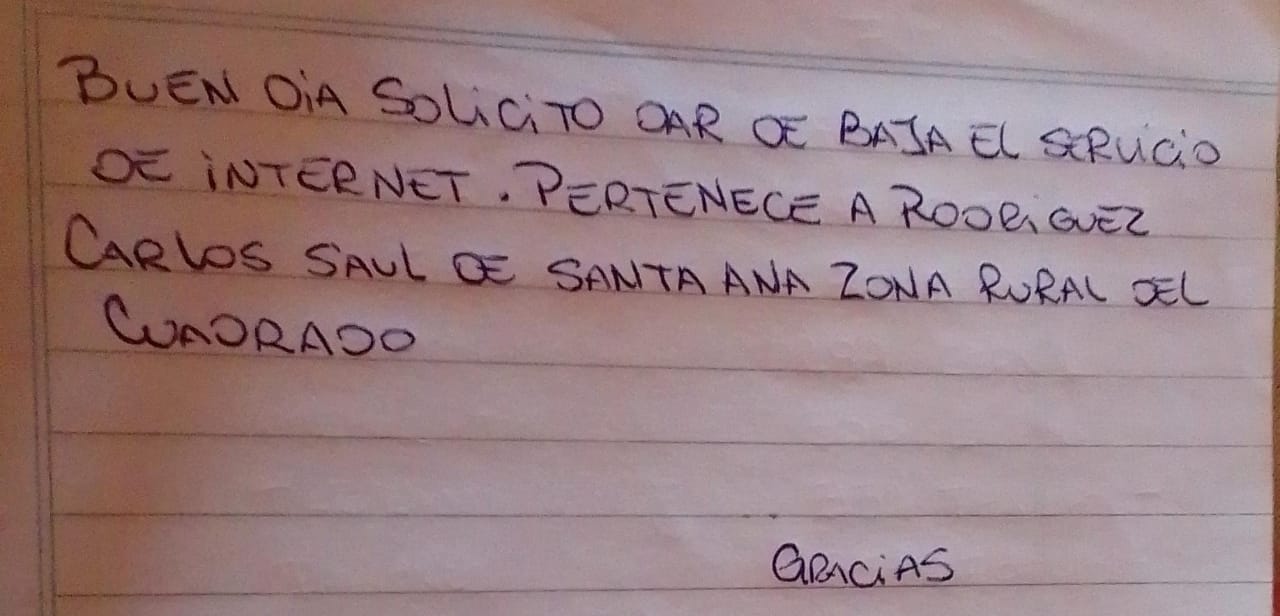 BUEN DiA SOLiCiTO DAR DE BAJA EL SERVICiO
DE iNTERNET. PERTENECE A RODRiGUEZ
CARLOS SAUL DE SANTA ANA ZONA RURAL DEL
CUADRADO
GRACiAS